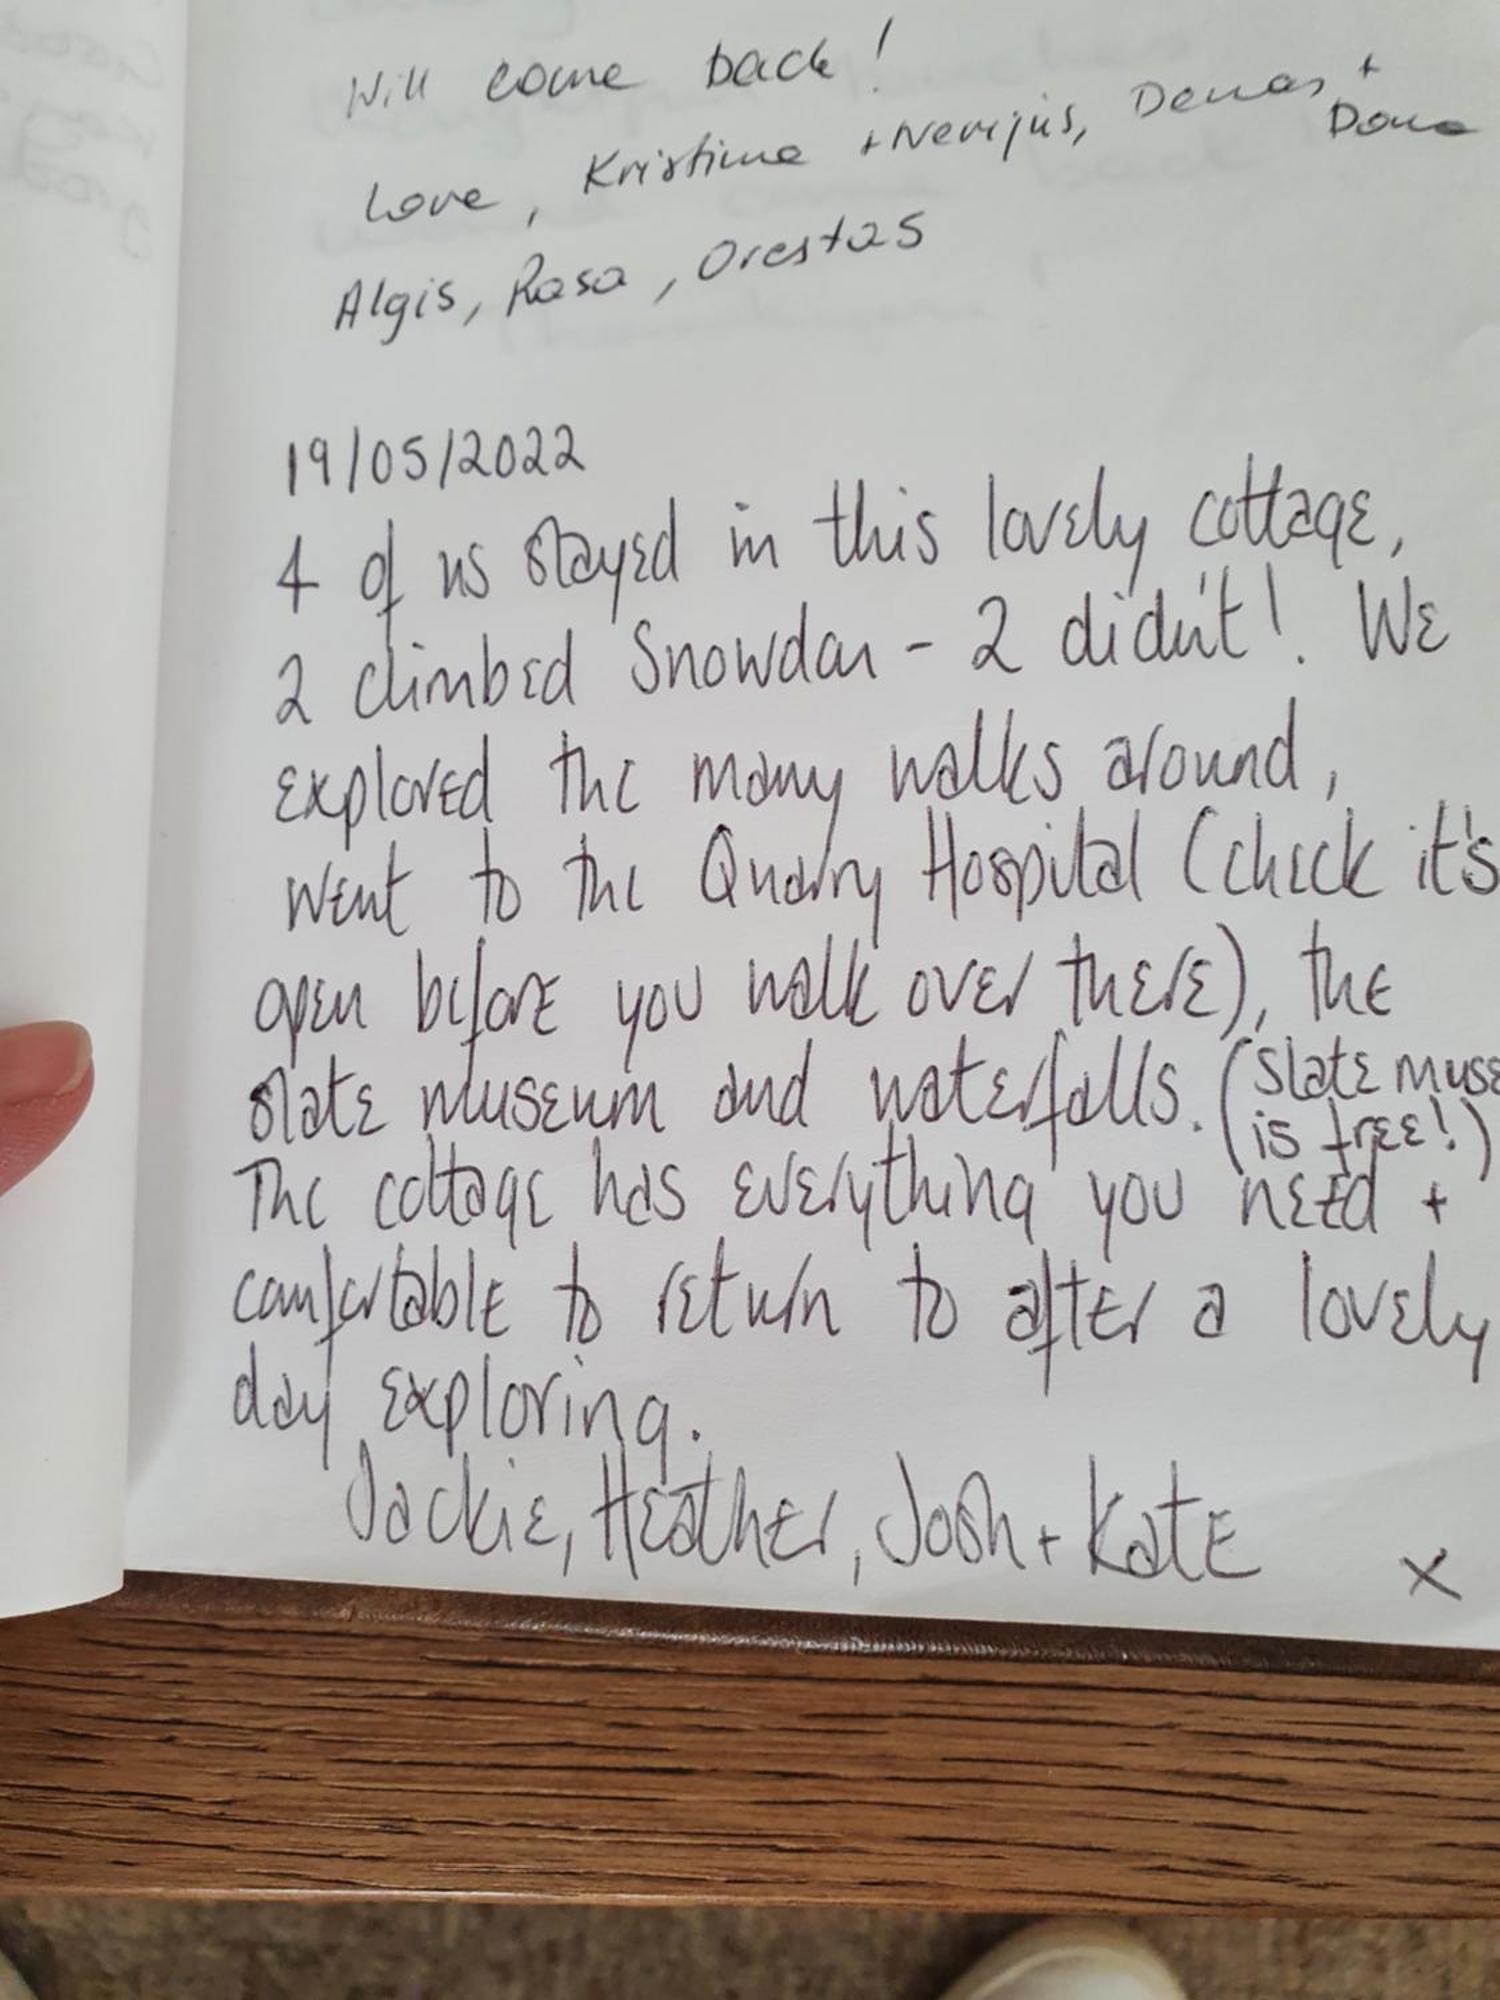 Will come back!
Love, Kristina + Nerijus, Denas +
Dona
Algis, Rasa, Orestas
19/05/2022
4 of us stayed in this lovely cottage,
2 climbed Snowdon - 2 didn't! We
explored the many walks around,
went to the Quarry Hospital (check it's
open before you walk over there), the
slate museum and waterfalls. (slate muse
is free!)
The cottage has everything you need +
comfortable to return to after a lovely
day exploring.
Jackie, Heather, Josh + Kate x